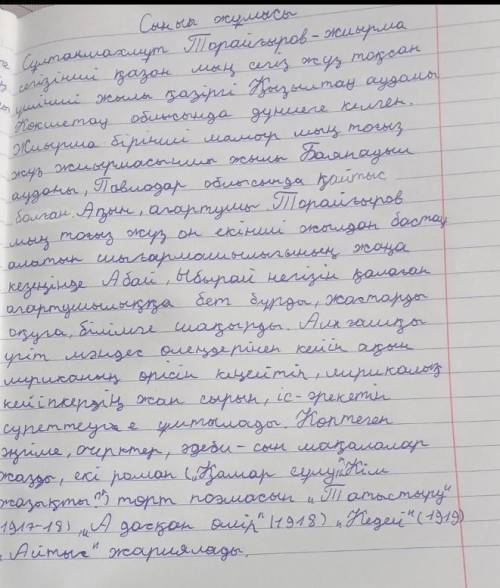 Сынып жұмысы
Сұлтанмахмұт Торайғыров - жиырма
сегізінші қазан мың сегіз жүз тоқсан
үшінші жылы қазіргі Қызылтау ауданы
Көкшетау облысында дүниеге келген.
Жиырма бірінші мамыр мың тоғыз
жүз жиырмасыншы жылы Баянауыл
ауданы, Павлодар облысында қайтыс
болған. Ақын, ағартушы. Торайғыров
мың тоғыз жүз он екінші жылдан бастау
алатын шығармашылығының жаңа
кезеңінде Абай, Ыбырай негізін қалаған
ағартушылыққа бет бұрды, жастарды
оқуға, білімге шақырды. Алғашқы
үгіт мәндес өлеңдерінен кейін ақын
лириканың өрісін кеңейтіп, лирикалық
кейіпкердің жан сырын, іс-әрекетін
суреттеуге ұмтылады. Көптеген
әңгіме, очерктер, әдеби-сын мақалалар
жазды, екі роман („Қамар сұлу" „Кім
жазықты?") төрт поэмасын „Таныстыру"
1917-18) „Адасқан өмір" (1918) „Кедей" (1919)
„Айтыс" жариялады.